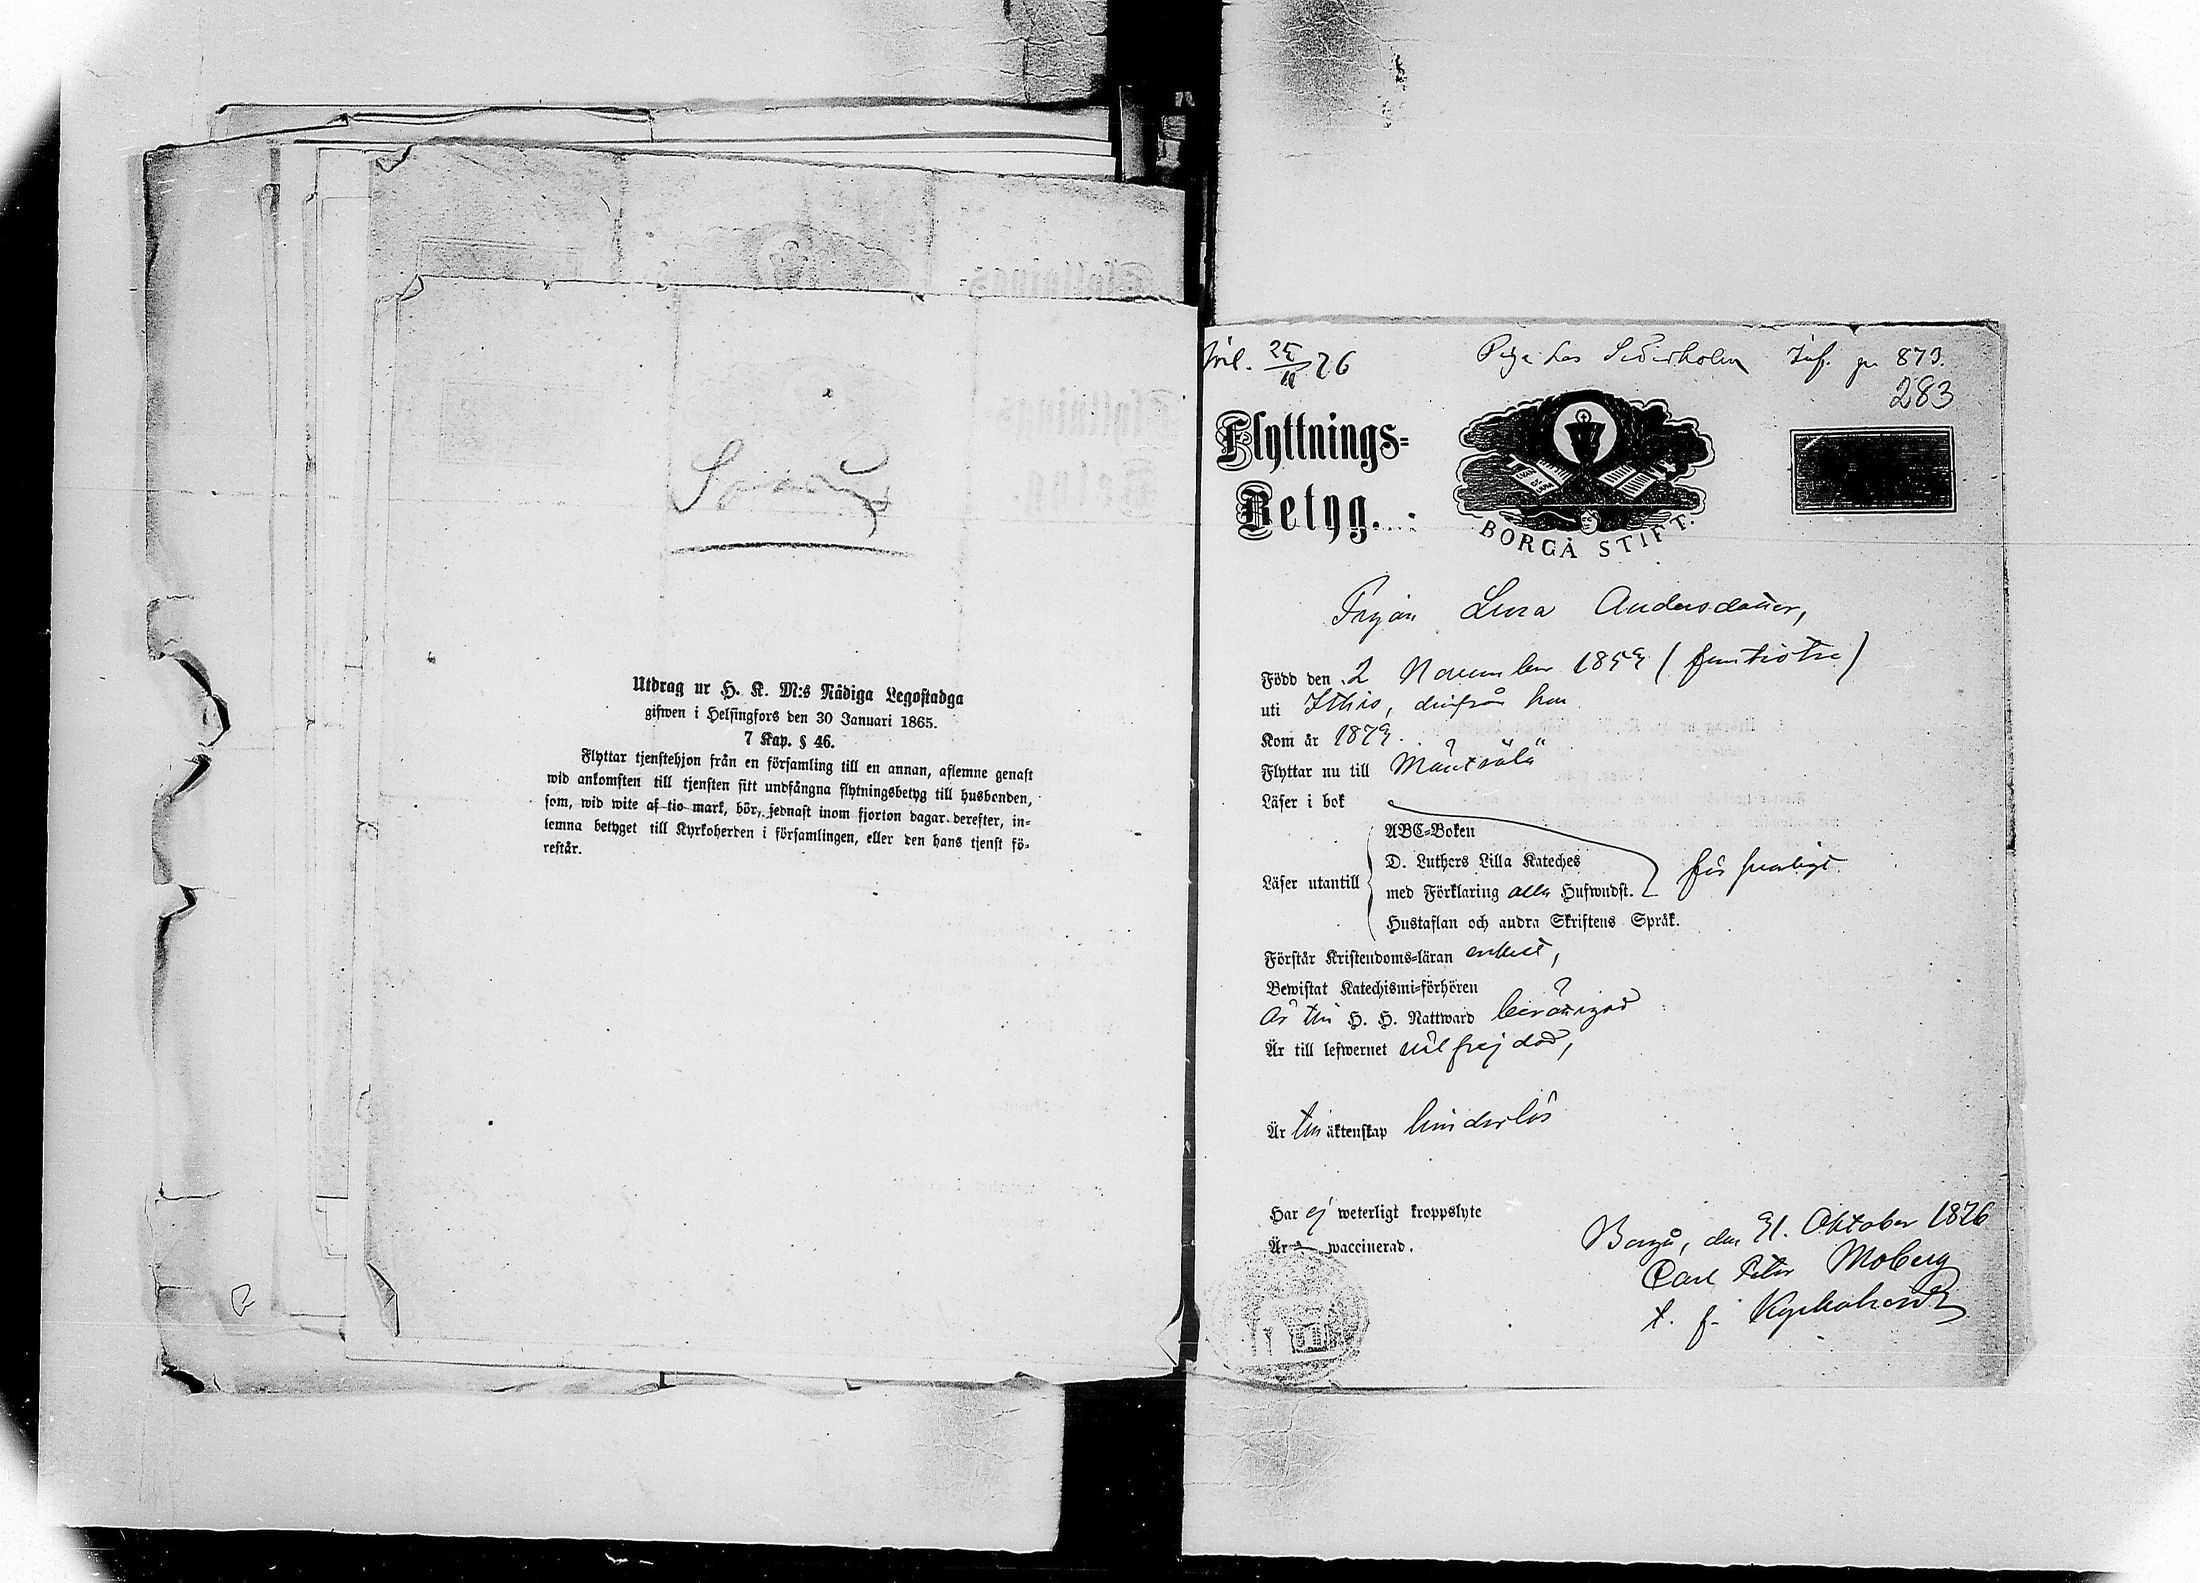 Utdrag ur H. K. M:s Nådiga Legostadga
gifwen i Helsingfors den 30 Januari 1865.
7 Kap. § 46.
Flyttar tjenstehjon från en församling till en annan, aflemne genast
wid ankomsten till tjensten sitt undfångna flytningsbetyg till husbonden,
som, wid wite af tio mark, bör, sednast inom fjorton dagar derefter, in-
lemna betyget till Kyrkoherden i församlingen, eller den hans tjenst fö-
restår.
26
Piga hos Söderholm Inf. pr 873.
283
Flyttnings-
Betyg.
BORGÅ STIFT.
Pigan Lovisa Andersdotter,
Född den 2 November 1853 (femtiotre)
uti Itthis, därifrån hon
Kom år 1873.
Flyttar nu till Mäntsälä
Läser i bok
ABC-Boken
D. Luthers Lilla Kateches
Läser utantill med Förklaring alla Hufwudst. försvarligt.
Hustaflan och andra Skriftens Språk.
Förstår Kristendoms-läran enkelt,
Bewistat Katechismi-förhören
Är till H. H. Nattward berättigad
Är till lefwernet välfrejdad,
Är till äktenskap hinderlös
Har ej weterligt kroppslyte
Är waccinerad.
Borgå, den 31. Oktober 1876
Carl Peter Moberg
t. f. Kyrkoherde